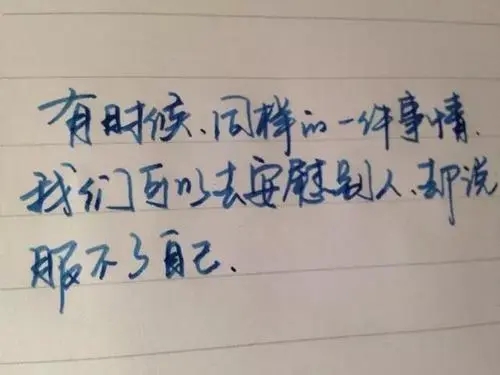 有时候、同样的一件事情、
我们可以去安慰别人、却说
服不了自己.